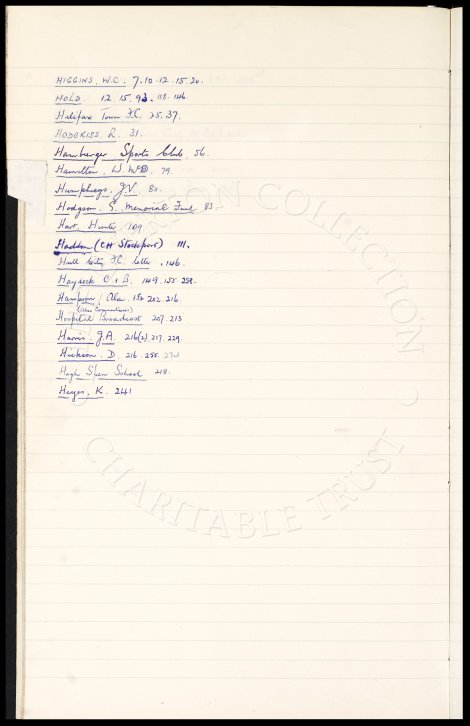 HIGGINS, W.C. 7.10.12.15.20.
HOLD 12.15.93.118.146.
Halifax Town F.C. 25.37.
HODGKISS. R. 31.
Hamburger Sports Club. 56.
Hamilton. W. 79.
Humphreys. J.V. 80.
Hodgson. G. Memorial Fund 83.
Hart. Hunter. 109.
Haddon (CH Stockport) 111.
Hull City F.C. letter. 146.
Haydock C & B. 149.155.258.
Hampson, Alan. 152 202.216.
Hospital Broadcast 207.213
Harris. J.A. 216(2).217.229.
Hickson. D. 216.255.
High Spen School 218.
Hayes. K. 241
COLLECTION
CHARITABLE TRUST